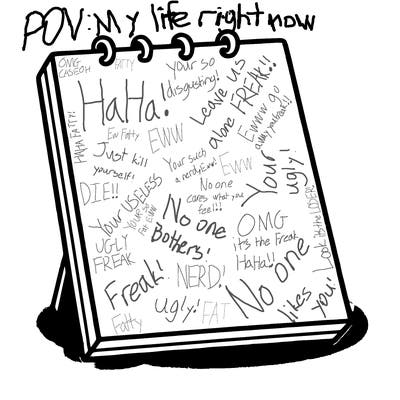 POV: My life right now
OMG
CASEOH
FATTY
your so
disgusting!
Leave us
alone FREAK!!
HaHa!
HAHA FATTY!
Ew Fatty
EWW
Ewww go
away
Just kill
yourself!
Your such
a nerd, Eww!
EWW
Your
ugly!
DIE!!
No one
cares what you
feel!!
Your USELESS
YOUR SO
FAT EWW
No one
Bothers!
OMG
it's the freak
HaHa!!
Look its the LOSER
UGLY
FREAK
Freak!
NERD!
No one
likes
you!
ugly!
FAT
Fatty